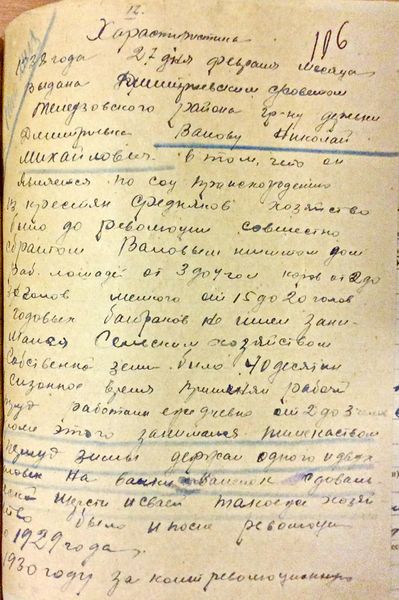 12.
Характиристика
106
1938 года 27 дня февраля месяца
выдана Дмитриевским с/советом
района гр-ну деревни
Дмитриевка Валову Николай
Михайлович. в том, что он
является по соц происхождению
из крестьян середняков хозяйство
было до революции совместно
с братом Валовым имели дом
раб. лошадей от 3 до 4 гол коров от 2 до
3 голов мелкого от 15 до 20 голов
годовых батраков не имел зани-
мался Сельским хозяйством
Собственной земли было 40 десятин
Сизонное время применял рабочий
труд работали ежедневно от 2 до 3 челов
кроме этого занимался
зимы держал одного и двух
на
шерсти и своей такое хозяй
ство было и после революции
до 1929 года.
1930 году за контрреволюционную